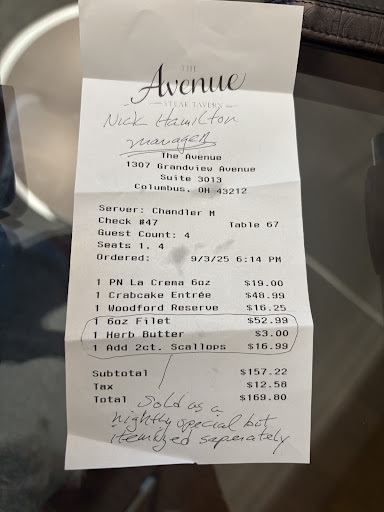 THE
Avenue
STEAK TAVERN
Nick Hamilton
manager
The Avenue
1307 Grandview Avenue
Suite 3013
Columbus, OH 43212
Server: Chandler M
Check #47 Table 67
Guest Count: 4
Seats 1, 4
Ordered: 9/3/25 6:14 PM
1 PN La Crema 6oz $19.00
1 Crabcake Entrée $48.99
1 Woodford Reserve $16.25
1 6oz Filet $52.99
1 Herb Butter $3.00
1 Add 2ct. Scallops $16.99
Subtotal $157.22
Tax $12.58
Total $169.80
Sold as a
nightly special but
itemized seperately